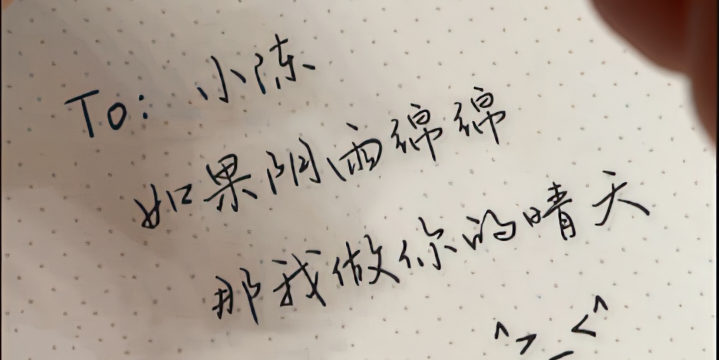 To: 小陈
如果阴雨绵绵
那我做你的晴天
^>_<^